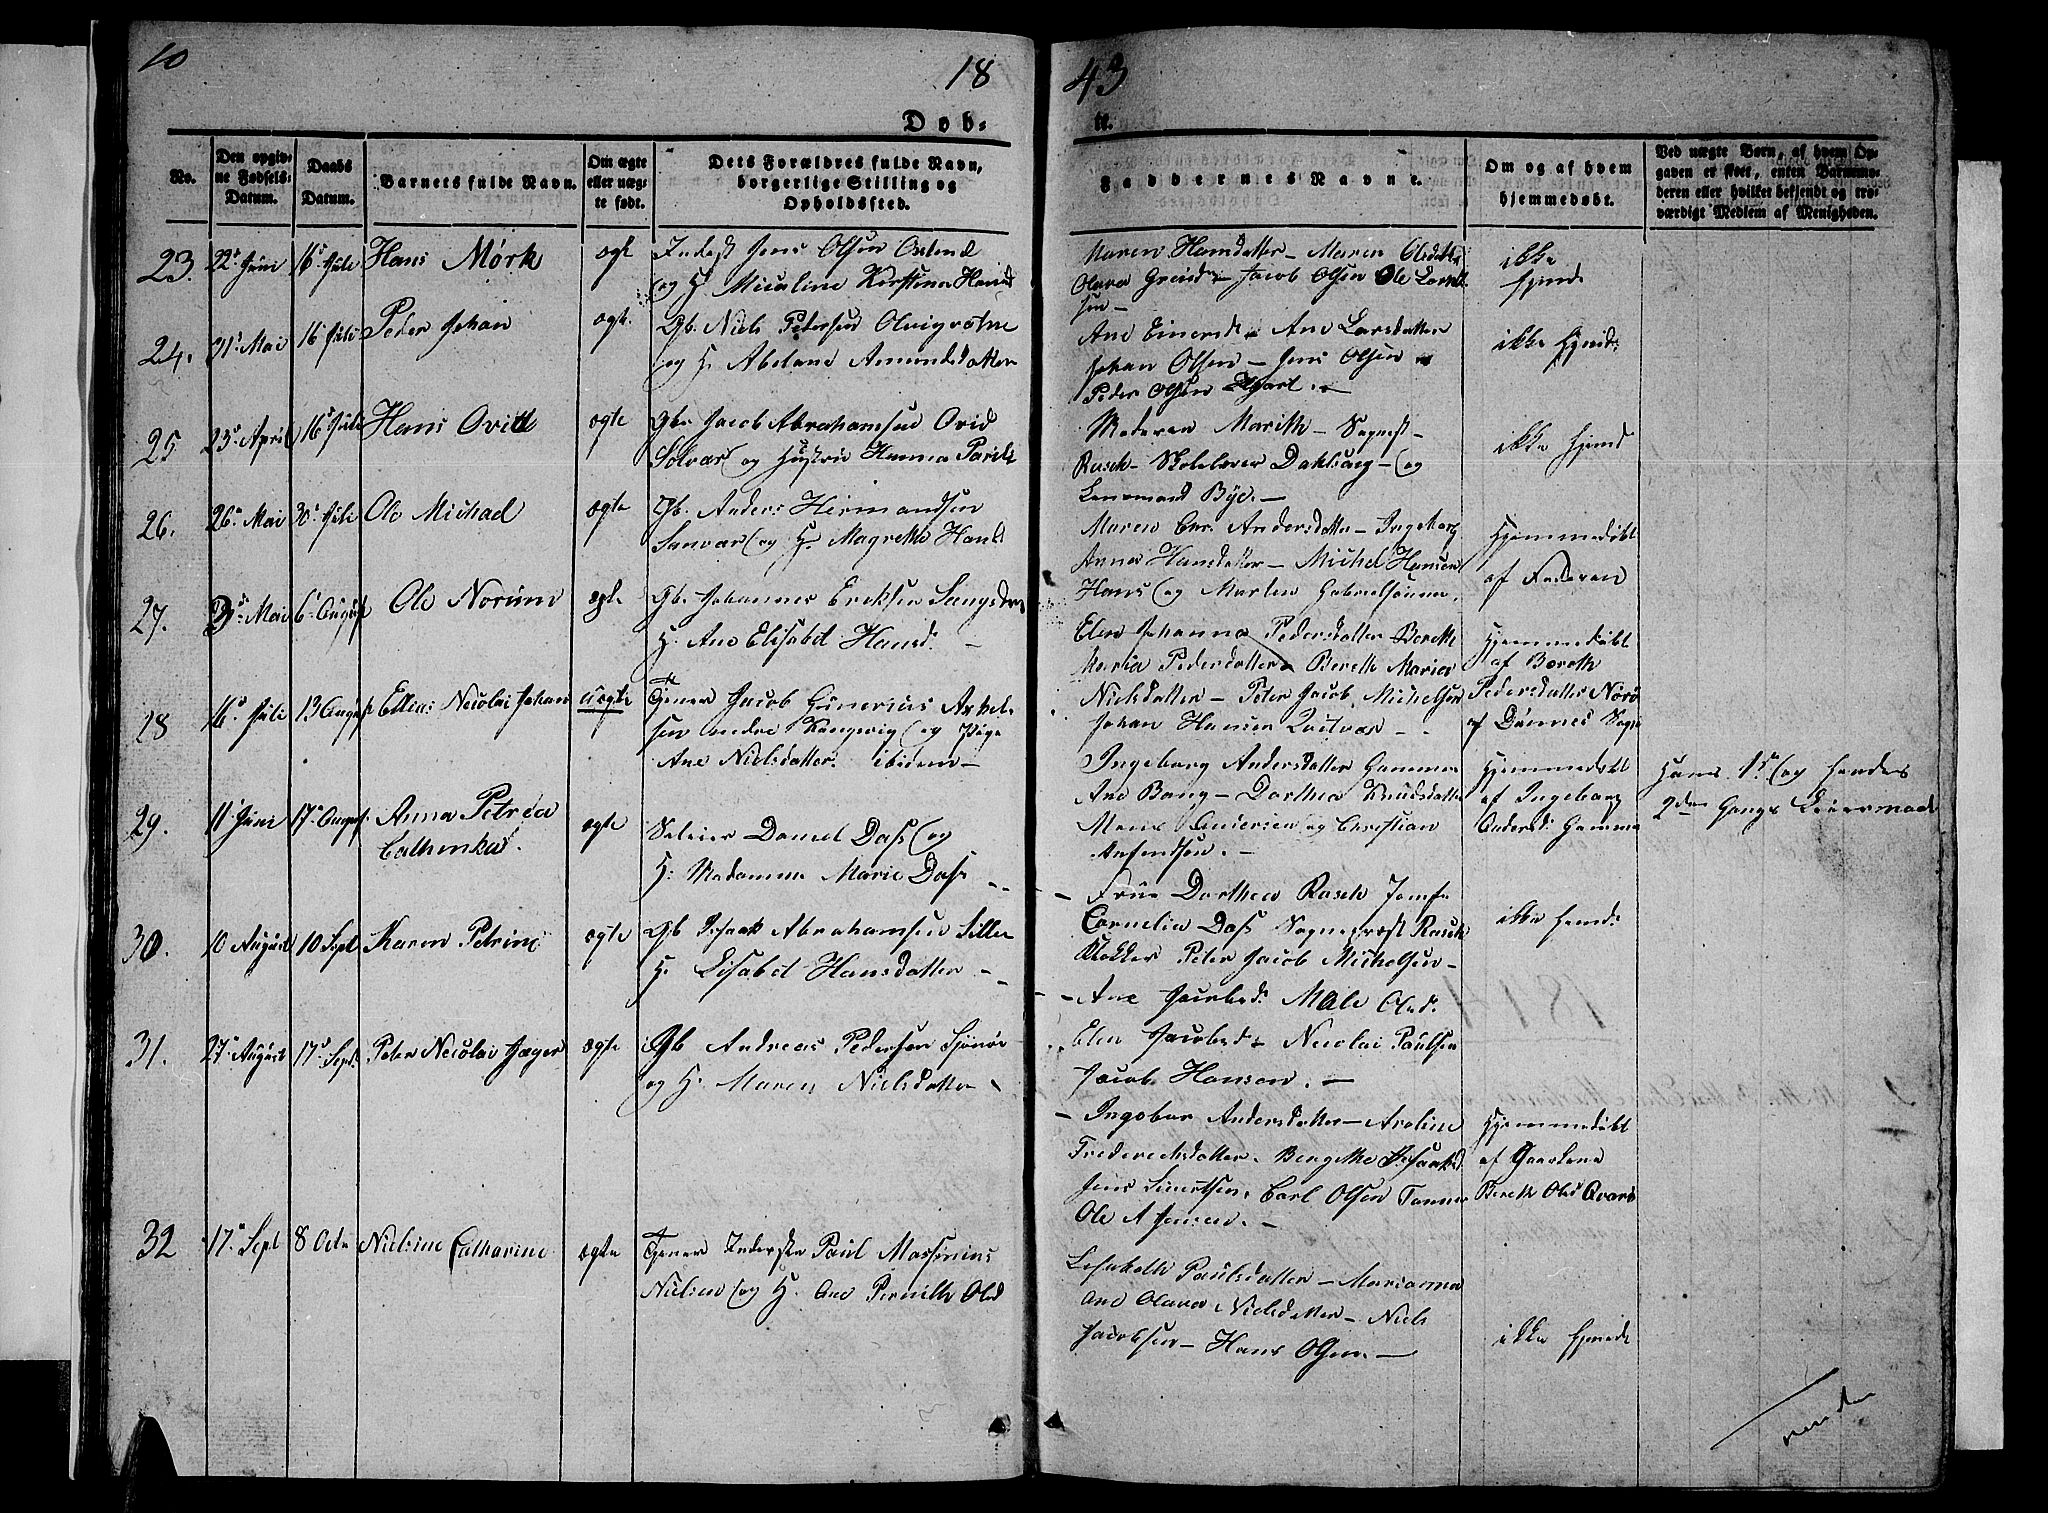 10
18 43
Döb- te.
No.
Den opgiv-
ne Fødsels-
Datum.
Daabs
Datum.
Barnets fulde Navn.
Om ægte
eller uæg-
te født.
Dets Forældres fulde Navn,
borgerlige Stilling og
Opholdssted.
Faddernes Navne.
Om og af hvem
hjemmedøbt.
Ved uægte Børn, af hvem Op-
gaven er skeet, enten Barnemo-
deren eller hvilket bekjendt og tro-
værdigt Medlem af Menigheden.
23. 22de Juni 16de Juli Hans Mørk ægt
Jens Olsen
og H. Nicoline Kirstina Hansd
Maren Hansdatter – Maren Olsdatter
Olava – Jacob Olsen Ole
sen –
ikke
hjemd
24. 31te Mai 16 Juli Peder Johan ægt.
Gb. Niels Pedersen
og H. Abelone Amundsdatter
Ane Einersd – Ane Larsdatter
Johan Olsen – Jens Olsen
Peder Olsen
ikke hjemd:
25 23de April 16de Juli Hans Ovid ægte
Gbr. Jacob Abrahamsen Ovid
Solvær og Hustrue Hanna
Moderen Marith – Sognepst –
Rasch – Skolelærer – og
Lensmand Bye. –
ikke hjemd
26. 26de Mai 30te Juli Ole Michael ægte
Gb. Anders Hermandsen
Sanvær og H. Magrethe Hansd
Maren Andersdatter – Ingeborg
Anna Hansdatter – Michel Hansen
Hans og Marten Gabrielsønner.
Hjemmedøbt
af Faderen
27. 3de Mai 6te August Ole Norum ægte
Gb. Johannes Eriksen
H. Ane Elisabet Hansd. –
Elen Johanna Pedersdatter Bereth
Maria Pedersdatter – Bereth Maria
Nielsdatter – Peter Jacob Michelsen
Johan Hansen –
Hjemmedøbt
af Bereth
Pedersdatter Norø
af Dønnes Sogn
28 16de Juli 13 August Elias Nicolai Johan uægte
Tjener Jacob
sen og Pige
Ane Nielsdatter ibidem –
Ingeborg Andersdatter
Ane Bang – Dorthea Knudsdatter
Mons Andersen og Christian
Hjemmedøbt
af Ingeborg
Andersd:
Hans 1ste og hendes
2den Gangs Leiermaal
29. 11 Juni 17de August Anna Petrea
Cathinka. ægte
Daniel Dass og
H. Madamme Marie Dass –
– Frue Dorthea Rasch Jomf.
Cornelia Dass Sogneprest Rasch
Klokker Peter Jacob Michelsen –
ikke hemd:
30. 10 August 10 Sept Karen Petrine ægte
Gb Isaak Abrahamsen
H. Lisabet Hansdatter –
– Ane Jacobsd: Male Olsd.
Elen Jacobsd – Nicolai Paulsen
Jacob Hansen. –
31. 27de August 17de Sept. Peter Nicolai Jæger ægte
Gb Andreas Pedersen
og H. Maren Nielsdatter –
– Ingebor Andersdatter – Aroline
Frederechsdatter. Bergethe Isaaksd
Jens Sivertsen, Carl Olsen
Ole A Jensen. –
Hjemmedøbt
af
Bereth Olsd
32 17de Sept 8 Octr Nielsine Catharine ægte
Tjener Inderste Paul Massenius
Nielsen og H. Ane Pernille Olsd
Lisabeth Paulsdatter – Marianna
Ane Olava Nielsdatter – Niels
Jacobsen – Hans Olsen. –
ikke hjemdt